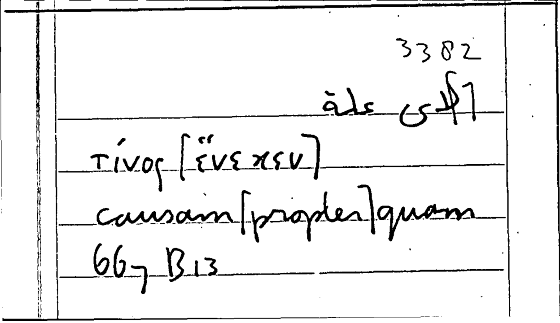 3382
لاى علة
τίνος [ἕνεκεν]
causam [propter] quam
667 B13